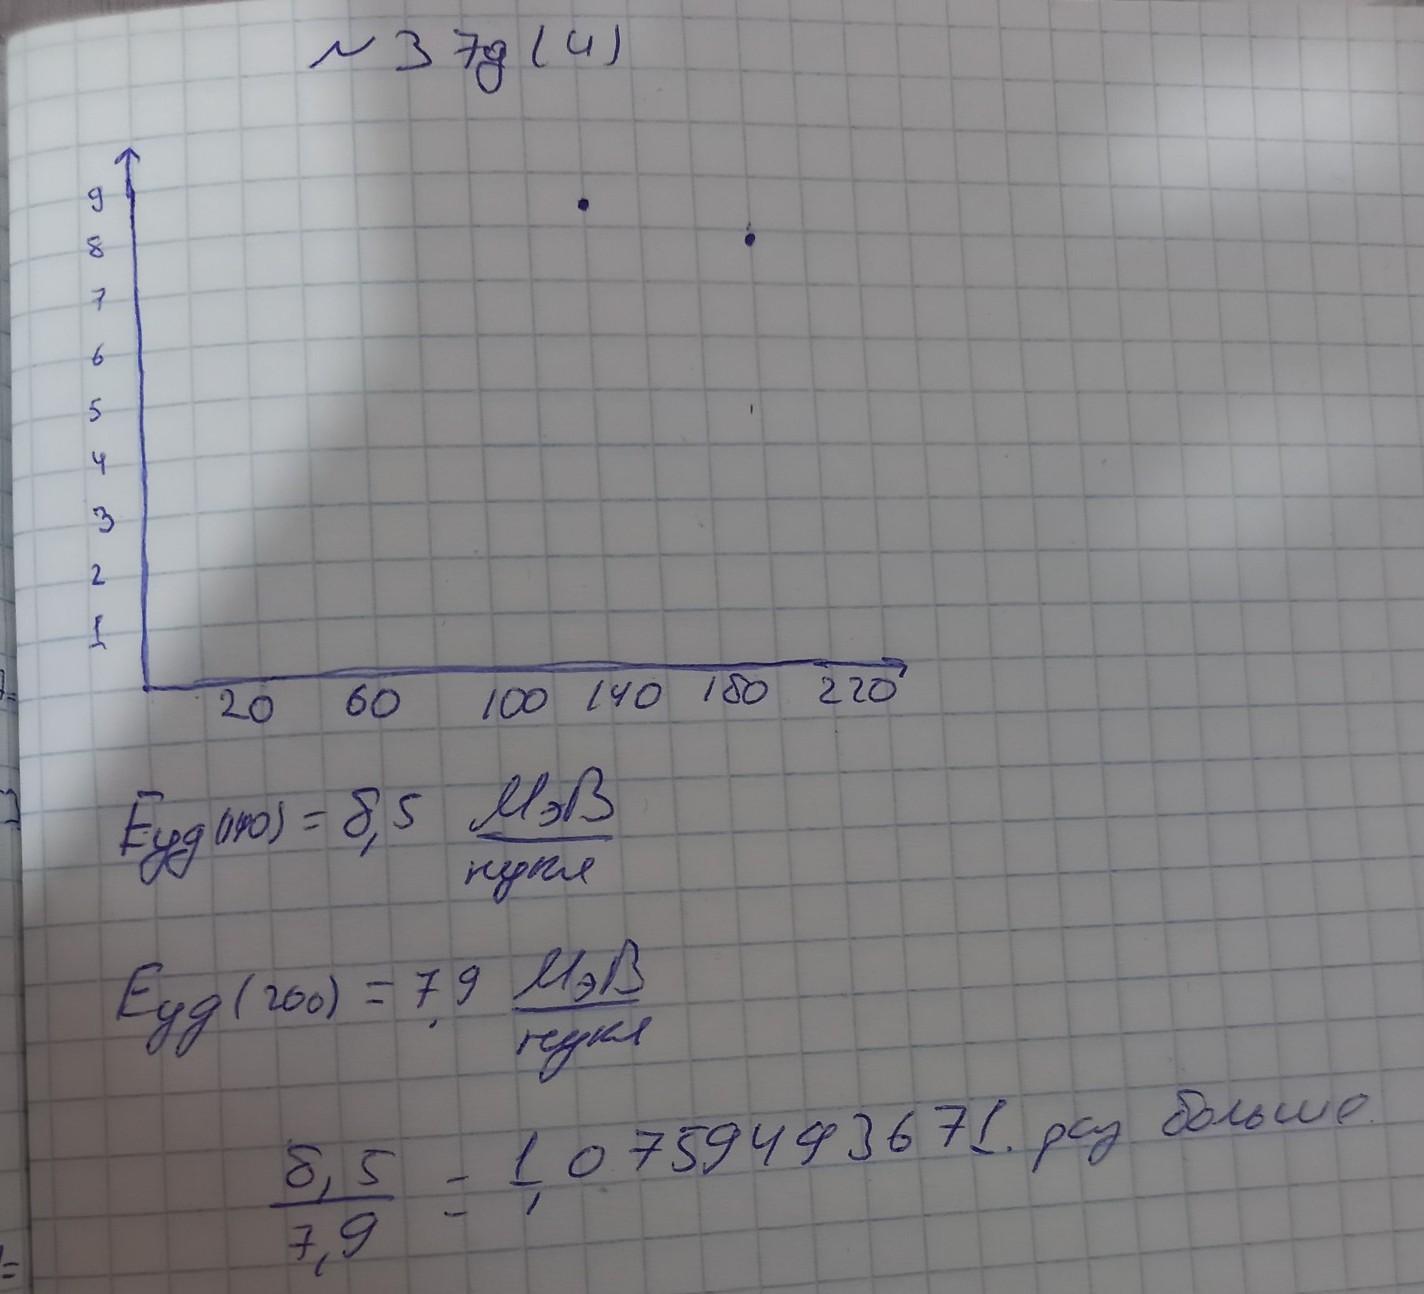 №3 7g(4)
9
8
7
6
5
4
3
2
1
20 60 100 140 180 220
Eуд(140) = 8,5 МэВ
нукл
Eуд(200) = 7,9 МэВ
нукл
8,5
7,9
= 1,07594493671 раз больше